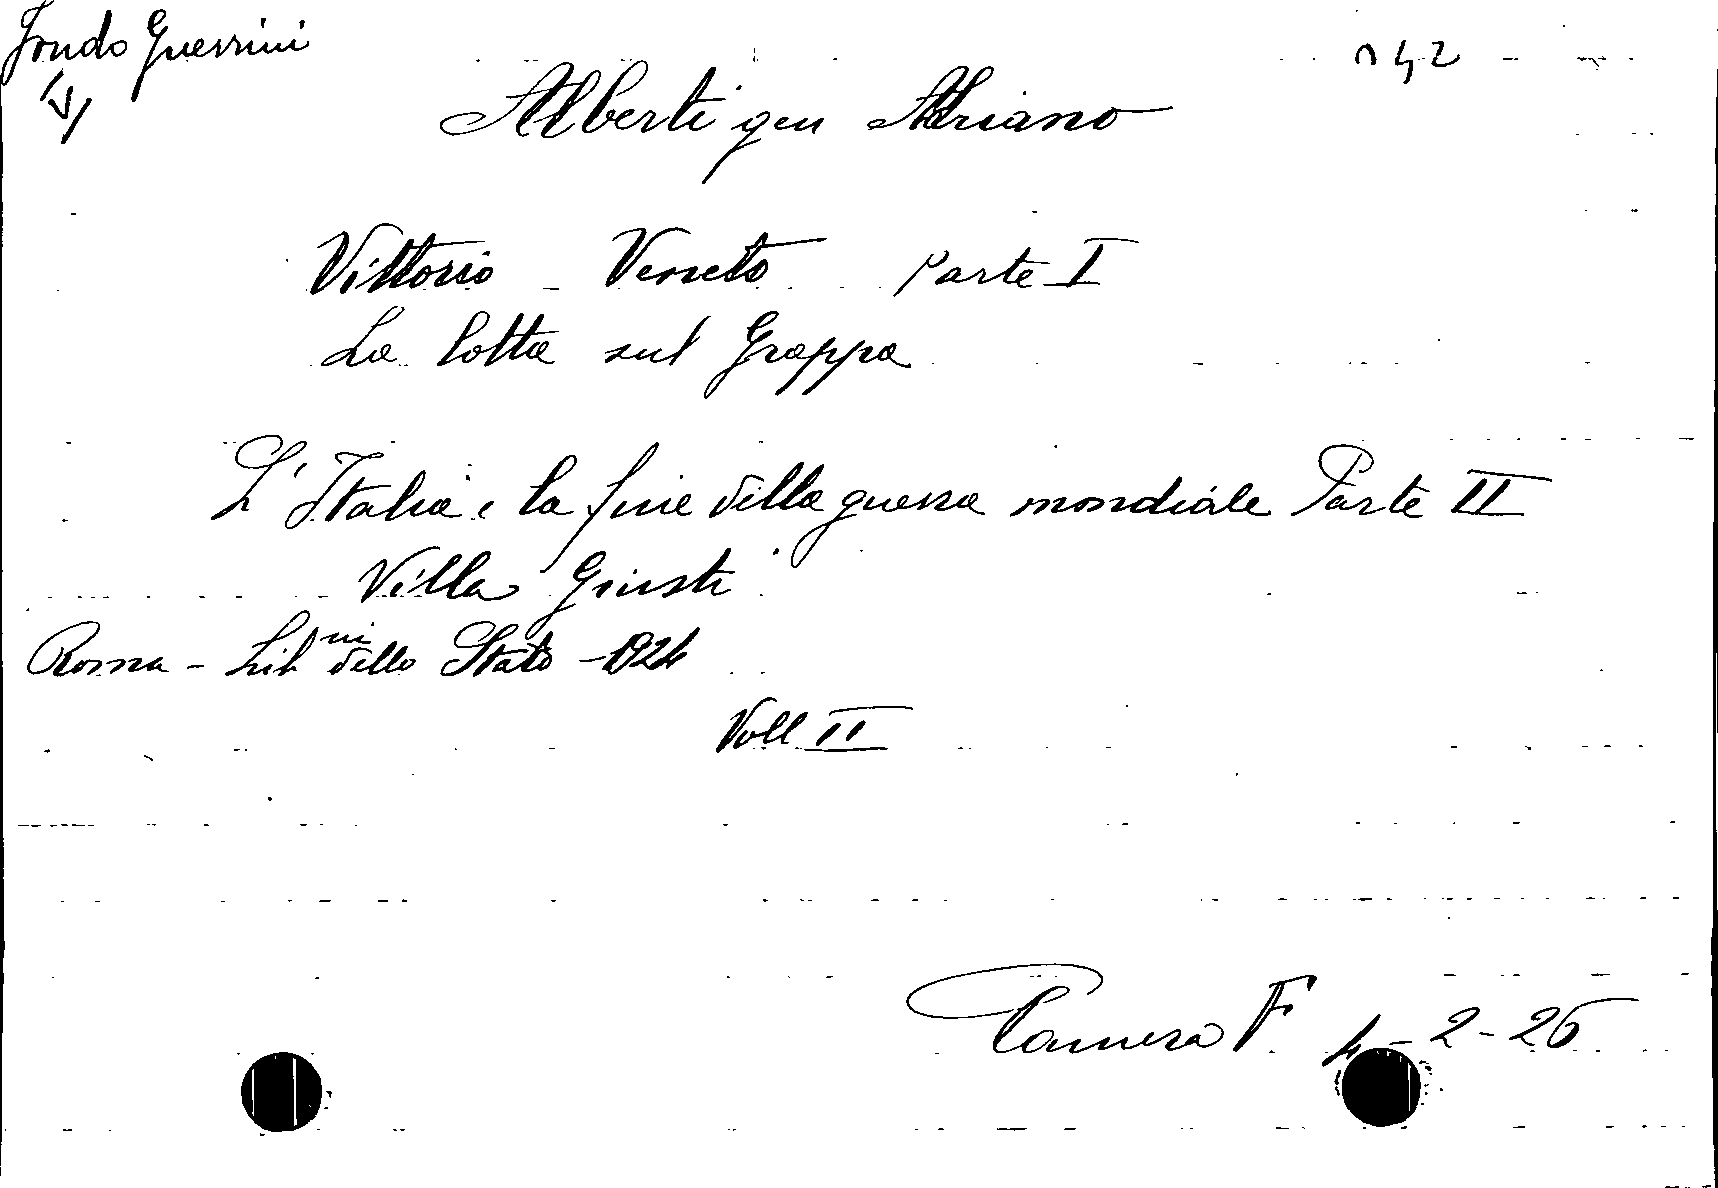 Fondo Guerrini
n 42
VI
Alberti gen Adriano
Vittorio Veneto Parte I
La lotta sul Grappa
L'Italia e la fine della guerra mondiale Parte II
Villa Giusti
Roma - Lib ni dello Stato - 1924
Voll II
Camera F 4-2-26